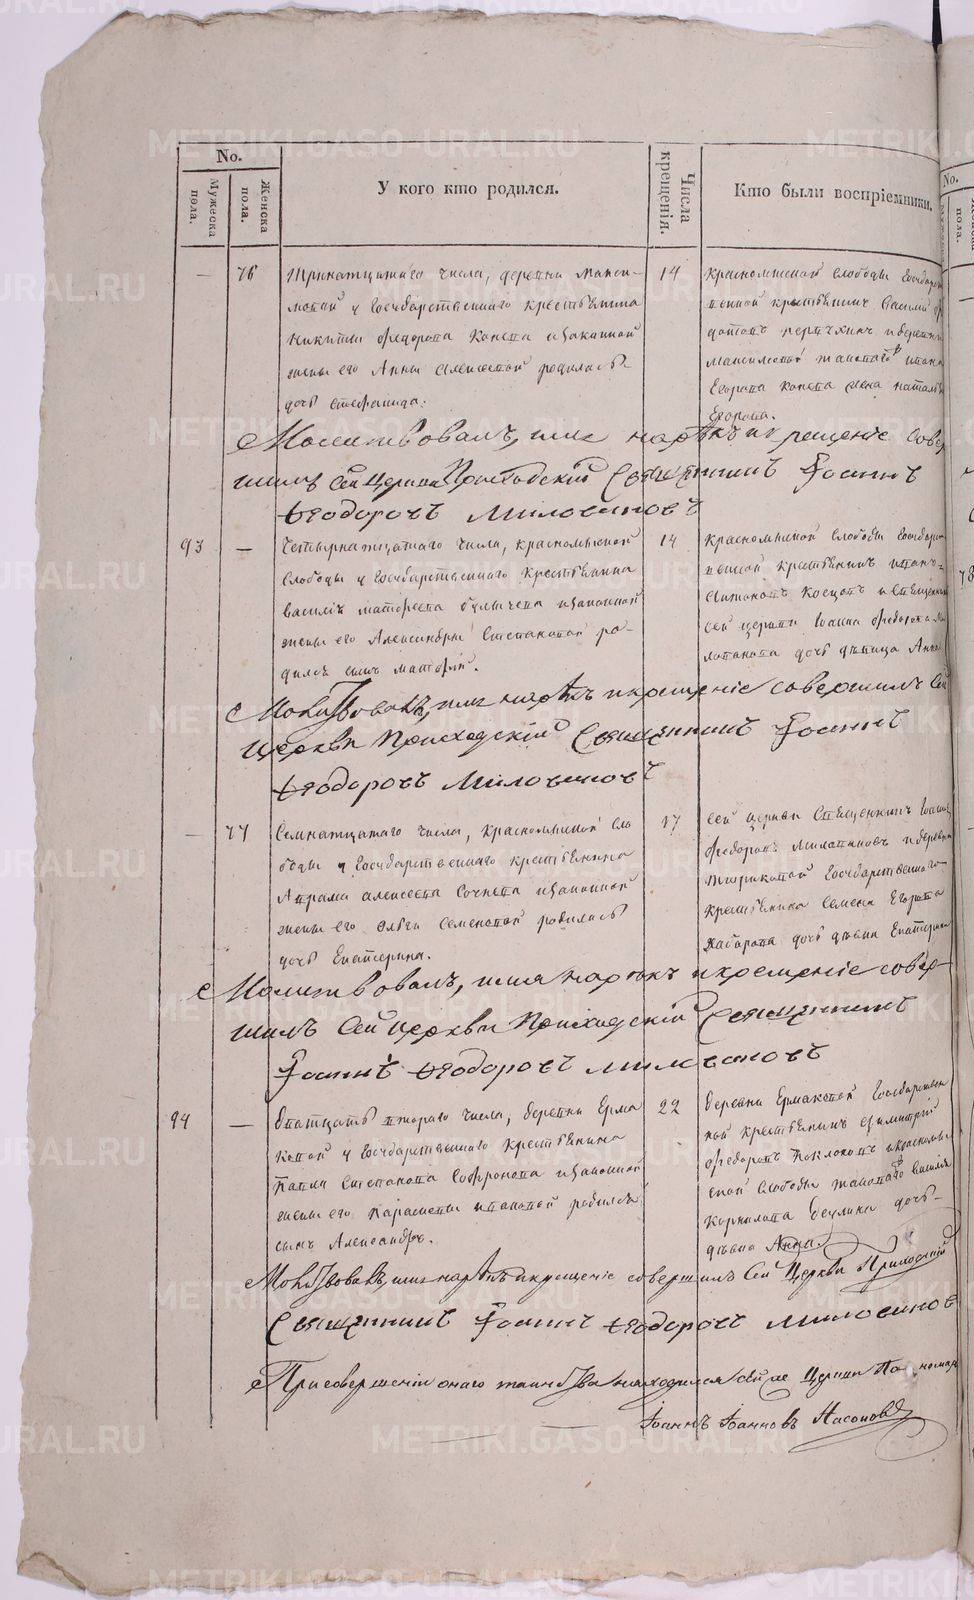 No.
Мужеска пола.
Женска пола.
У кого кто родился.
Числа крещенія.
Кто были воспріемники.
No.
— 76
Тринатцатаго числа, деревни Макси-
мовой у Государственнаго крестьянина
Никиты Федорова Конева изаконной
жены его Анны Алексеевой родилась
дочь Стефанида:
14
Красномыской слободы Государ
Василий
деревни
Егорова Конева жена Наталья
Егорова.
Молитвовалъ, имя нарѣкъ и крещеніе совер
шилъ Сей Церкви Приходскій Священникъ Іоаннъ
Ѳеодоровъ Миловановъ
93 —
Четырнатцатаго числа, красномыской
слободы у Государственнаго крестьянина
Василія Матвеева Булычева изаконной
жены его Александры Степановой ро-
дился сынъ Матфей.
14
Красномыской слободы Государ
венной крестьянинъ Иванъ
и Священника
сей церкви Іоанна Федорова Ми
лованова дочь дѣвица Анна
Молитвовалъ, имя нарѣкъ и крещеніе совершилъ Сей
Церкви Приходскій Священникъ Іоаннъ
Ѳеодоровъ Миловановъ
— 77
Семнатцатаго числа, красномыской сло
боды у Государственнаго крестьянина
Аврама Алексеева Сочнева изаконной
жены его Ольги Семеновой родилась
дочь Екатерина.
17
сей церкви Священникъ Іоаннъ
Федоровъ Миловановъ и деревни
Государственнаго
крестьянина Семена Егорова
Хабарова дочь дѣвка Екатерина
Молитвовалъ, имя нарѣкъ и крещеніе совер-
шилъ Сей Церкви Приходскій Священникъ
Іоаннъ Ѳеодоровъ Миловановъ
94 —
Дватцать втораго числа, деревни Ерма
ковой у Государственнаго крестьянина
Павла Степанова Софронова изаконной
жены его Ивановой родился
сынъ Александръ.
22
деревни Ермаковой Государствен
ной крестьянинъ Димитрій
Федоровъ и красномы
ской слободы Василія
Корнилова дочь
дѣвка Анна
Молитвовалъ, имя нарѣкъ и крещеніе совершилъ Сей Церкви Приходскій
Священникъ Іоаннъ Ѳеодоровъ Миловановъ
При совершеніи онаго таинства находился сей же Церкви Пономарь
Іоаннъ Іоанновъ Насоновъ
METRIKI.GASO-URAL.RU